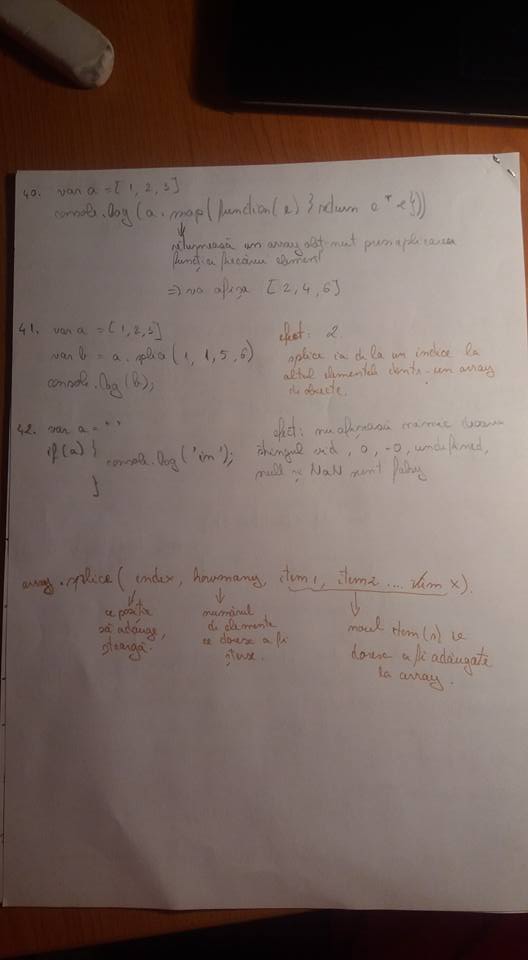 40. var a = [1, 2, 3]
console.log(a.map(function(e) { return e * e}))
returnează un array obținut prin aplicarea
funcției fiecărui element
=> va afișa [2, 4, 6]
41. var a = [1, 2, 3]
var b = a.splice(1, 1, 5, 6)
console.log(b);
efect: 2.
splice ia de la un indice la
altul elementele dintr-un array
de obiecte.
42. var a = ""
if(a) {
console.log('in');
}
efect: nu afișează nimic deoarece
stringul vid, 0, -0, undefined,
null și NaN sunt falsy
array.splice(index, howmany, item1, item2 ... item X).
ce poziție
să adauge,
șteargă.
numărul
de elemente
ce doresc a fi
șterse.
noul item(s) ce
doresc a fi adăugate
la array.